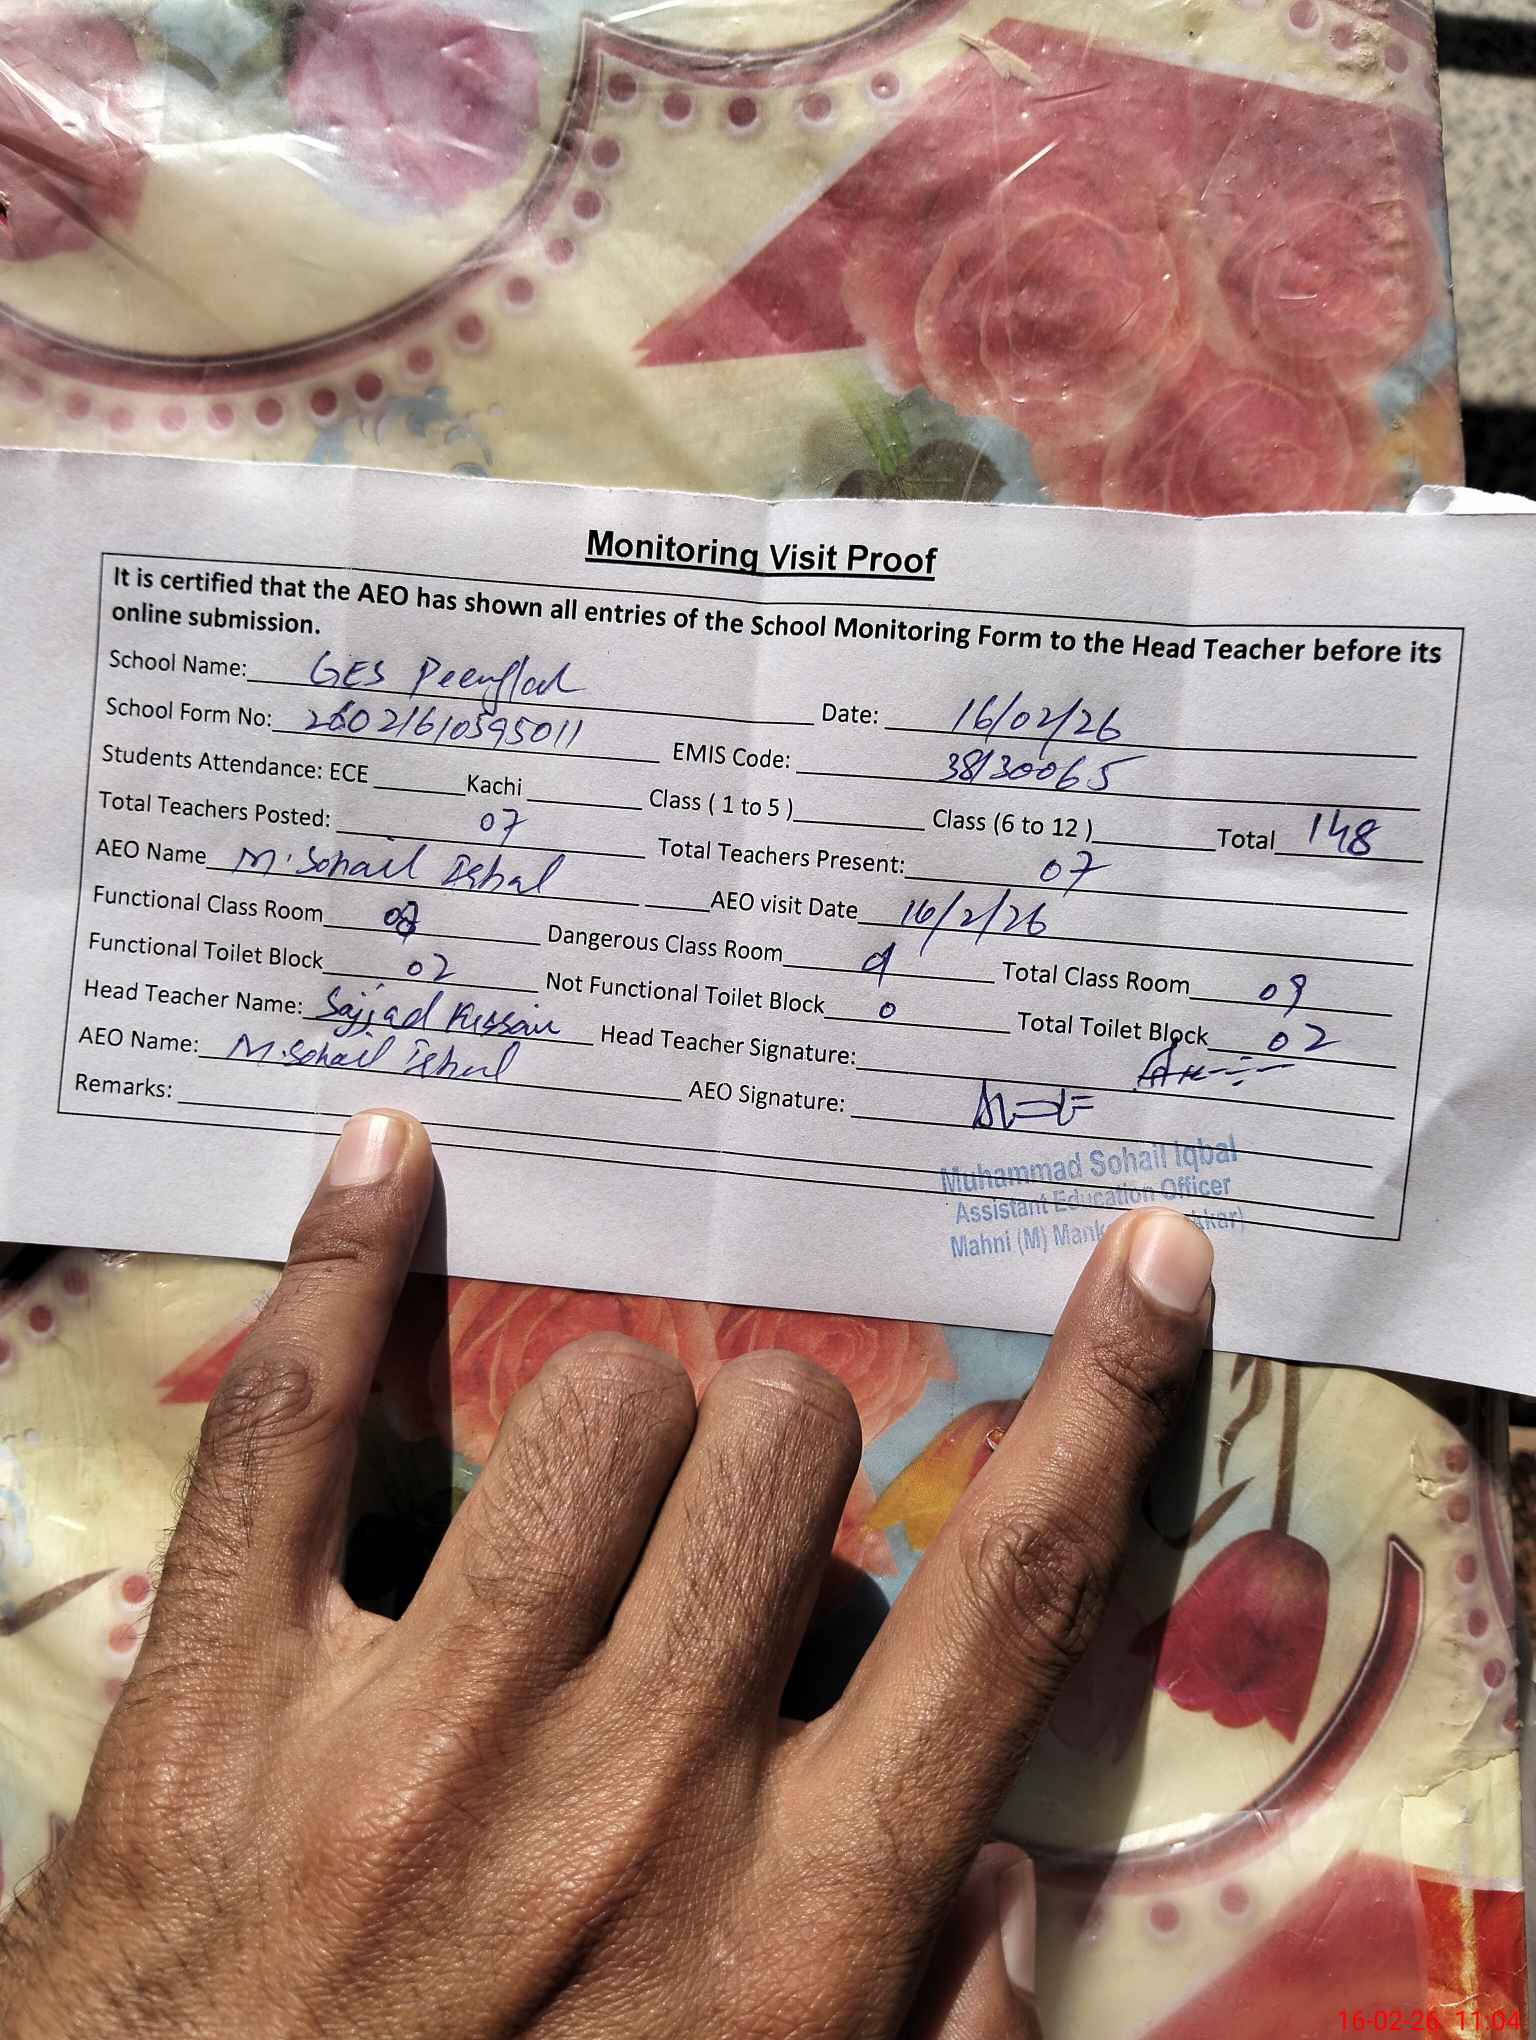 Monitoring Visit Proof
It is certified that the AEO has shown all entries of the School Monitoring Form to the Head Teacher before its
online submission.
School Name: GES Date: 16/02/26
School Form No: 26021610595011 EMIS Code: 38130065
Students Attendance: ECE Kachi Class ( 1 to 5 ) Class (6 to 12 ) Total 148
Total Teachers Posted: 07 Total Teachers Present: 07
AEO Name M. Sohail Iqbal AEO visit Date 16/2/26
Functional Class Room Dangerous Class Room Total Class Room 09
Functional Toilet Block 02 Not Functional Toilet Block 0 Total Toilet Block 02
Head Teacher Name: Sajjad Hussain Head Teacher Signature:
AEO Name: M. Sohail Iqbal AEO Signature:
Remarks:
Muhammad Sohail Iqbal
Assistant Education Officer
Mahni (M)
16-02-26, 11:04